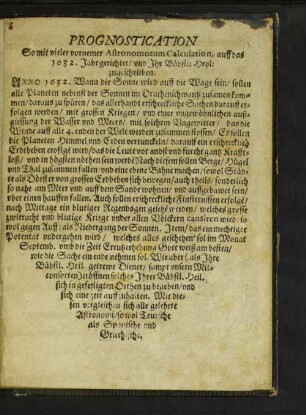 PROGNOSTICATION
So mit vieler vornemer Astronomorum Calculation, auff das
1632. Jahr gerichtet/ vnd Ihr Bäbstl: Heyl:
zugeschrieben.
ANNO 1632. Wann die Sonne wird auff die Wage sein/ sollen
alle Planeten nebenst der Sonnen im Drachenschwantz zusamen kom-
men/ daraus zu spüren/ das allerhandt erschreckliche Sachen darauff er-
folgen werden/ mit grossen Kriegen/ vnd einer vngewöhnlichen auß-
giessung der Wasser vnd Meers/ mit solchem Vngewitter/ das die
Winde auff alle 4. enden der Welt werden zusammen stossen/ Es sollen
die Planeten Himmel vnd Erden vertunckeln/ darauff ein erschrecklich
Erdbeben erfolgt wird/ daß die Leute vor anhst vnd furcht gantz Krafft-
loß/ vnd in höchsten nöthen sein werdē: Nach diesem sollen Berge/ Hügel
vnd Thal zusammen fallen/ vnd eine ebene Bahne machen/ sowol Städ-
te als Dörffer von grossen Erdbeben sich bewegen/ auch theils/ sonderlich
so nahe am Meer vnd auff dem Sande wohnen/ vnd auffgebawet sein/
vber einen hauffen fallen. Auch sollen erschreckliche Finsternissen erfolgē/
nach Mittage ein blutiger Regenbogen gesehē werden/ welches grosse
zwitracht vnd blutige Kriege vnder allen Völckern causiren wird so
wol gegen Auff: als Niedergang der Sonnen. Item/ das ein mechtiger
Potentat vndergehen wird/ welches alles geschehen sol im Monat
Septemb. vnd die Zeit Creutzerhebung Gott weiß am besten/
wie die Sache ein ende nehmen sol. Wir aber (als Ihre
Bäbstl. Heil. getrewe Diener/ sampt vnsern Mit-
consorten) hoffnen solches Ihrer Bäbstl. Heil.
sich in gefestigten Orthen zu begeben/ vnd
sich eine zeit auffzuhalten. Mit die-
sen vergleichen sich alle gelehrte
Astronomi/ sowol Teutsche
als Spanische vnd
Griechische.